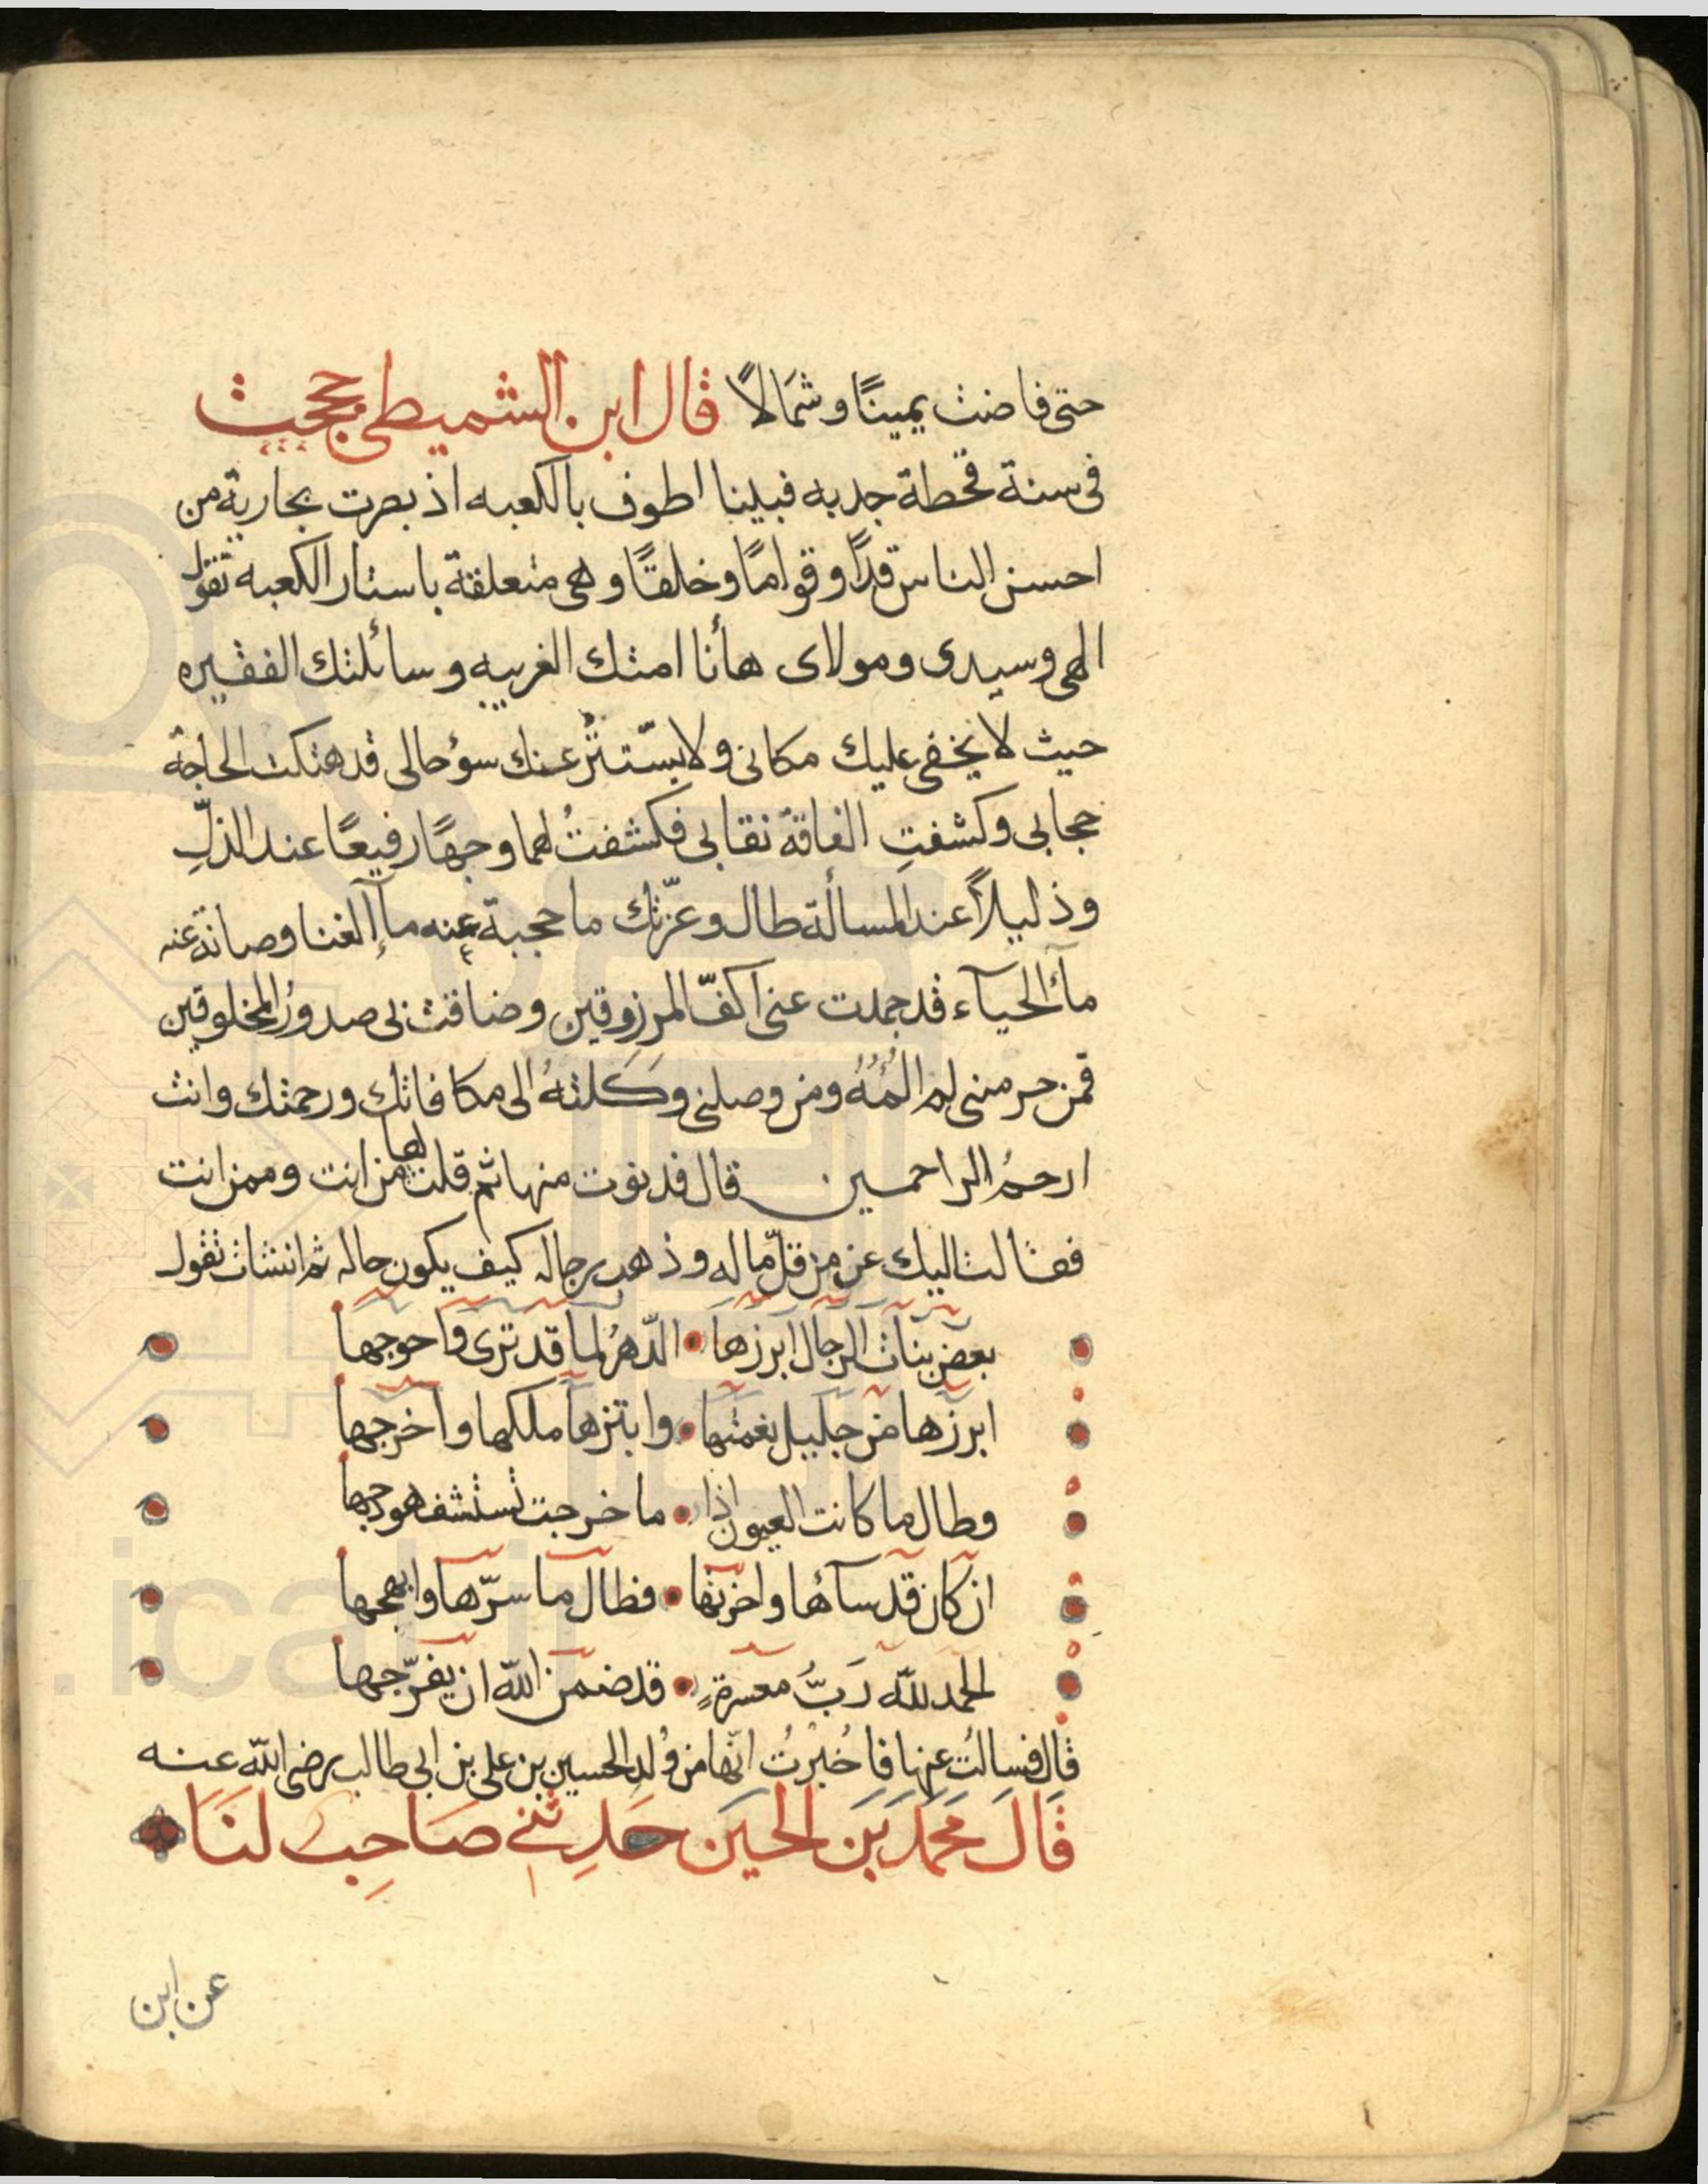 حتى فاضت يمينًا وشمَالاً قال ابن الشميطى حججت
فى سنة قحطة جدبه فبينا اطوف بالكعبه اذ بصرت بجارية من
احسن الناس قدًا وقوامًا وخلقًا وهى متعلقة باستار الكعبه تقول
الهى وسيدى ومولاى هأنا امتك الغريبه وسائلتك الفقيره
حيث لا يخفى عليك مكانى ولا يستتر عنك سؤحالى قد هتكت الحاجة
حجابى وكشفتِ الفاقة نقابى فكشفتُ لهما وجهًا رفيعًا عند الذلِّ
وذليلاً عند المسألة طال وعزّتك ما حجبة عنه مآ الغنا وصانة عنه
مآء الحيآء قد جمدت عنى اكفّ المرزوقين وضاقت بى صدورُ المخلوقين
فمن حرمنى لم المُهُ ومن وصلنى وَكَلتهُ الى مكافاتك ورحمتك وانت
ارحمُ الراحمين قال فدنوت منها ثم قلت لها من انت وممن انت
فقالت اليك عنى من قلّ ماله وذهب رجاله كيف يكون حاله ثم انشات تقول
بعض بنات الرجال ابرزها • الدّهرُ لما قد ترى وَاحوجها
ابرزها من جليل نعمتها • وابتزها ملكها واخرجها
وطال ما كانت العيون اذا • ما خرجت تستشف هودجها
ان كان قد سآءها واحزنها • فطال ما سرّها وابهجها
الحمد للّه رَبُّ معسرةٍ • قد ضمن اللّه ان يفرّجها
قال فسالتُ عنها فاخبرتُ انّها من وُلد الحسين بن على بن ابى طالب رضى اللّه عنه
قَالَ محَمَّد بَن الحسَين حَدِثنى صَاحِب لنَا
عن ابن